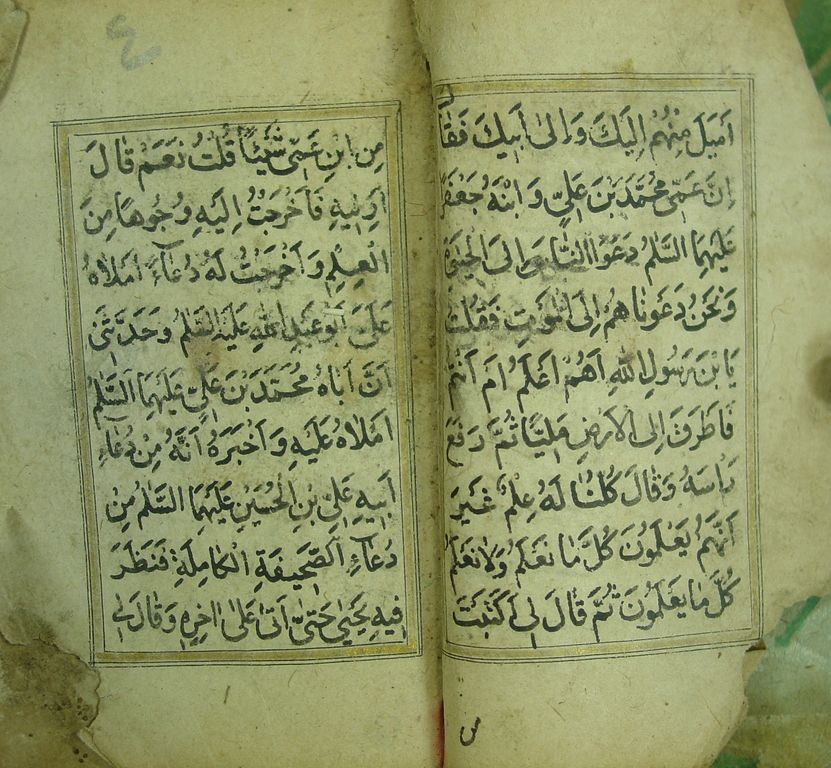 اَمْيَلَ مِنْهُمْ اِلَيْكَ وَاِلىٰ اَبيكَ فَقٰا
اِنَّ عَمّى مُحَمَّدَ بْنَ عَلِىٍّ وَ ابْنَهُ جَعْفَرَ
عَلَيْهِمَا السَّلٰمُ دَعَوَا النّٰاسَ اِلىَ الْحَيٰوةِ
وَنَحْنُ دَعَوْنٰاهُمْ اِلىَ الْمَوْتِ فَقُلْتُ
يَا بْنَ رَسُولِ اللهِ اَهُمْ اَعْلَمُ اَمْ اَنْتُمْ
فَاَطْرَقَ اِلىَ الْاَرْضِ مَلِيًّا ثُمَّ رَفَعَ
رَاْسَهُ وَقٰالَ كُلُّنٰا لَهُ عِلْمٌ غَيْرَ
اَنَّهُمْ يَعْلَمُونَ كُلَّ مٰا نَعْلَمُ وَلٰا نَعْلَمُ
كُلَّ مٰا يَعْلَمُونَ ثُمَّ قٰالَ لى اَكَتَبْتَ
مِنِ ابْنِ عَمّى شَيْئًا قُلْتُ نَعَمْ قٰالَ
اَرِنيهِ فَاَخْرَجْتُ اِلَيْهِ وُجُوهًا مِنَ
الْعِلْمِ وَ اَخْرَجْتُ لَهُ دُعٰآءً اَمْلٰاهُ
عَلَىَّ اَبُو عَبْدِ اللهِ عَلَيْهِ السَّلٰمُ وَحَدَّثَنى
اَنَّ اَبٰاهُ مُحَمَّدَ بْنَ عَلِىٍّ عَلَيْهِمَا السَّلٰمُ
اَمْلٰاهُ عَلَيْهِ وَ اَخْبَرَهُ اَنَّهُ مِنْ دُعٰآءِ
اَبيهِ عَلِىِّ بْنِ الْحُسَيْنِ عَلَيْهِمَا السَّلٰمُ مِنْ
دُعٰآءِ الصَّحيفَةِ الْكٰامِلَةِ فَنَظَرَ
فيهِ يَحْيىٰ حَتّىٰ اَتىٰ عَلىٰ اٰخِرِهِ وَقٰالَ لى